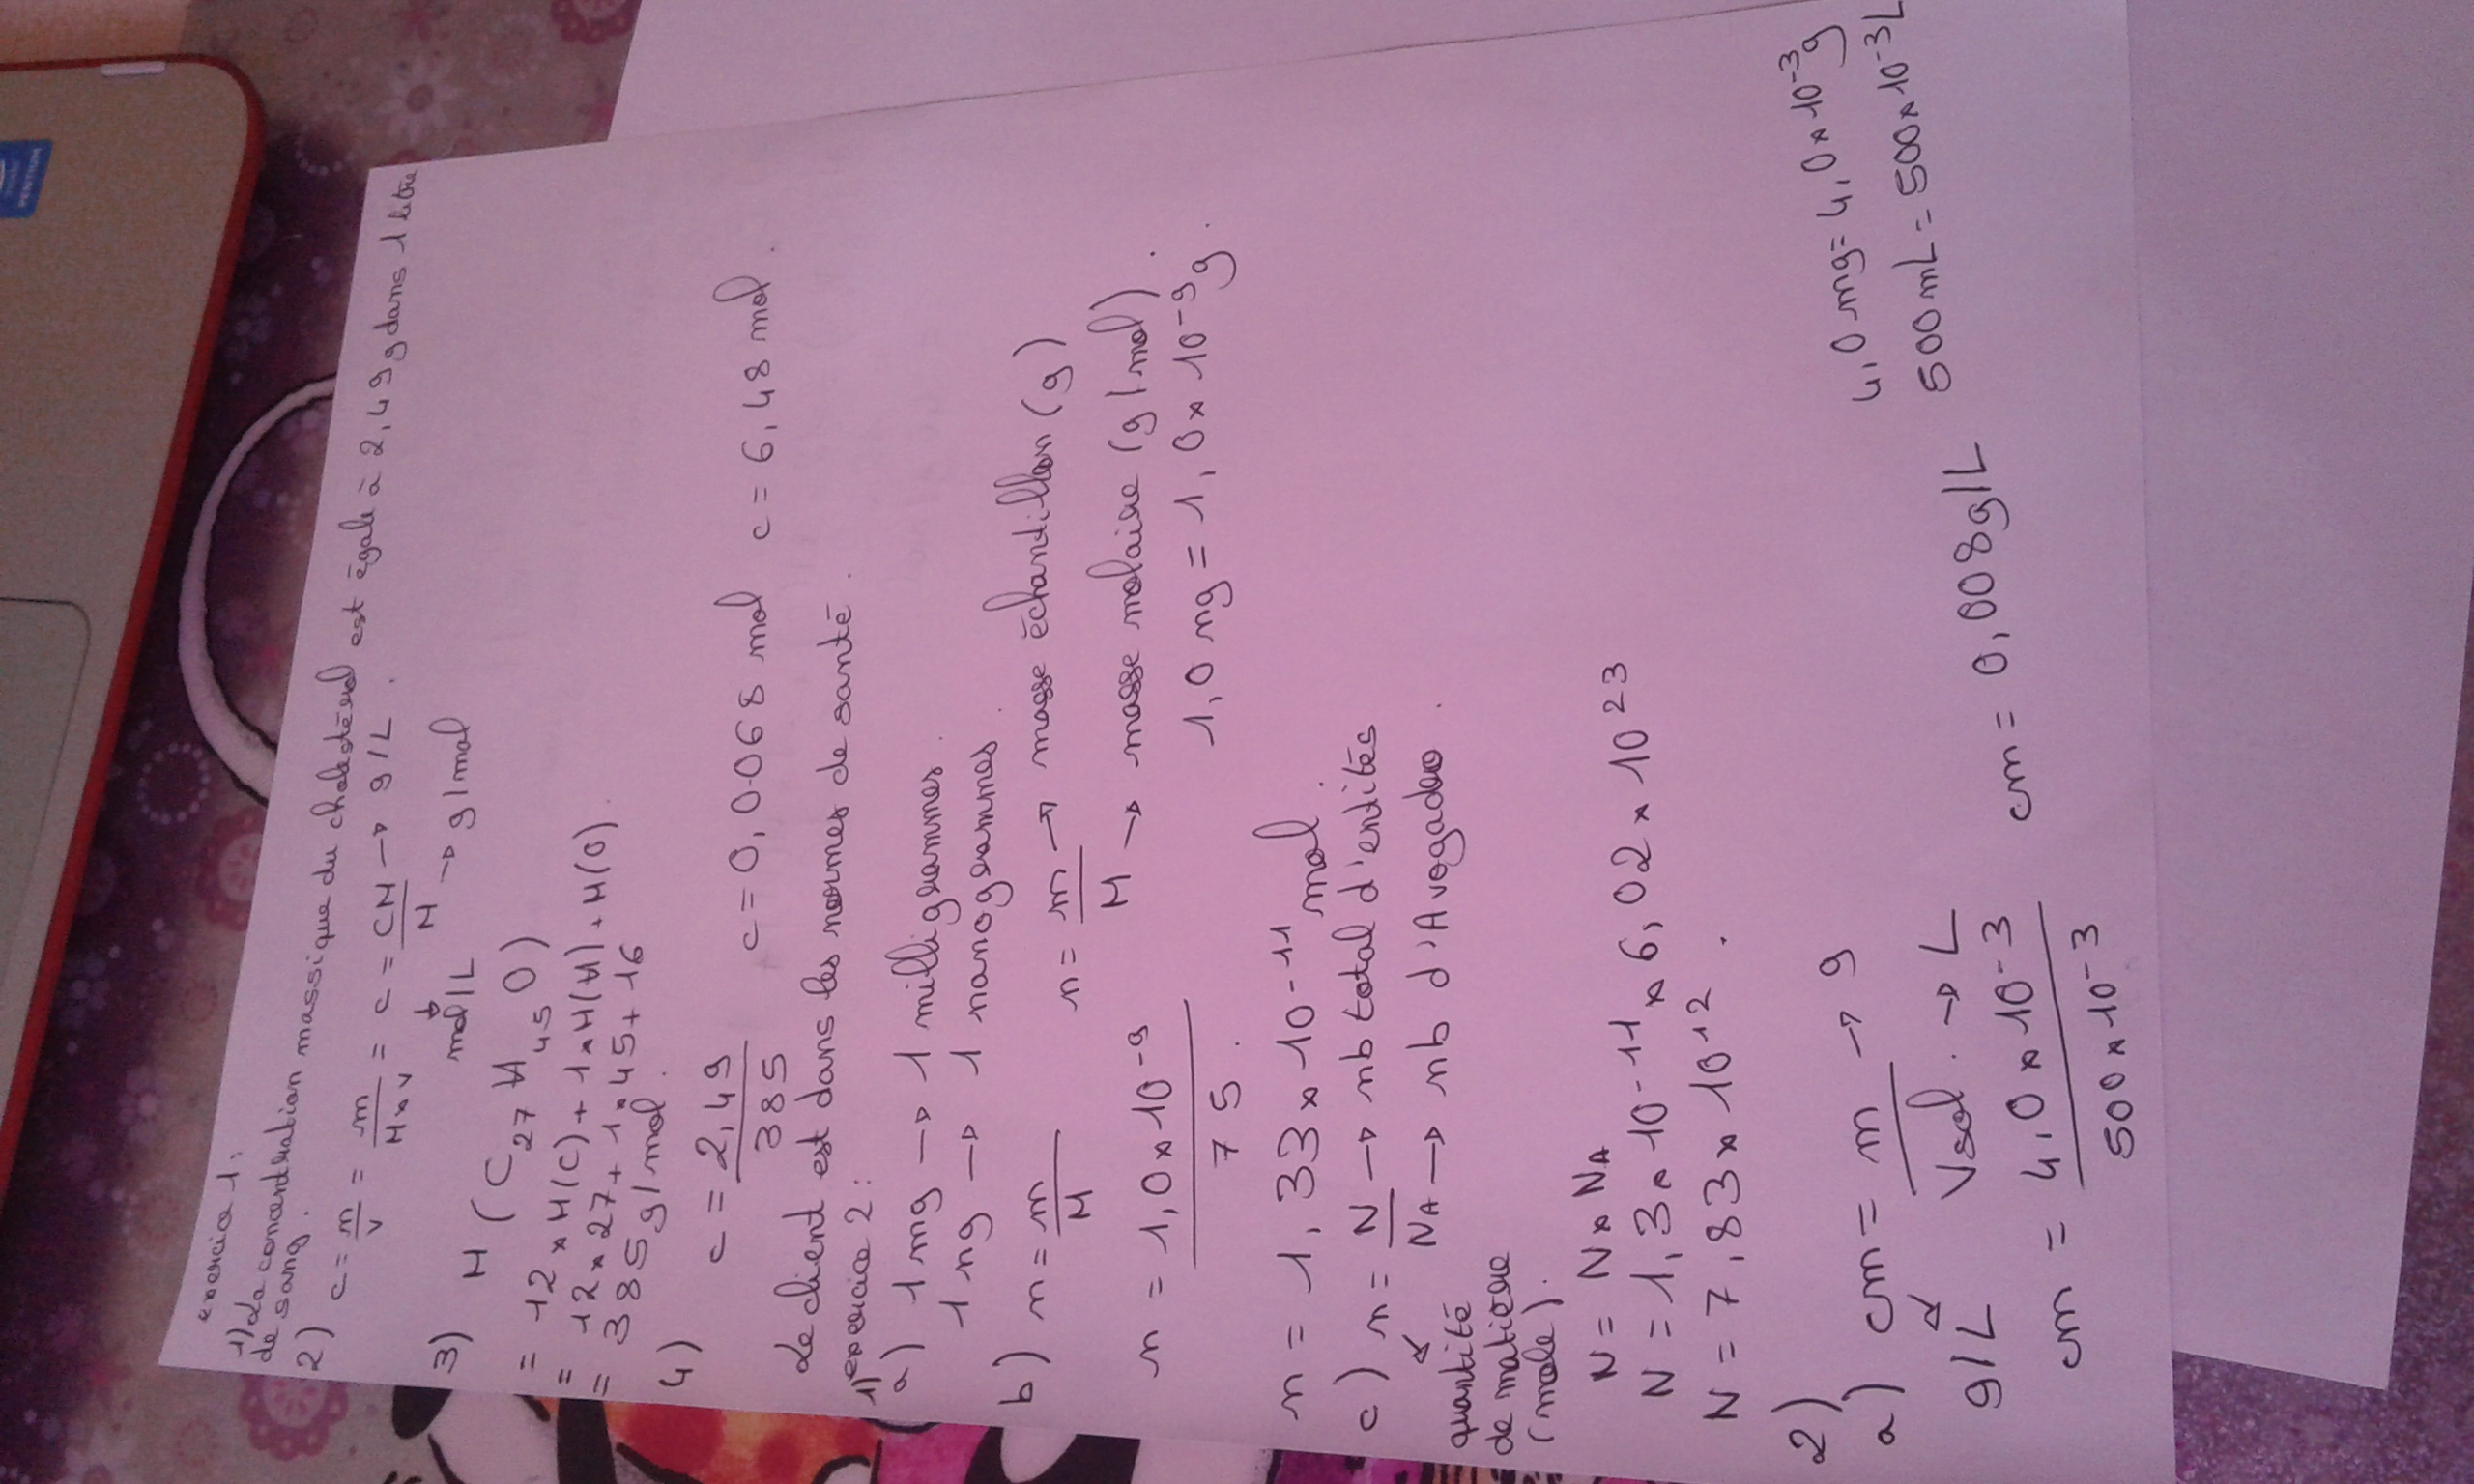 exercice 1:
1) La concentration massique du cholestérol est égale à 2,49 g dans 1 litre
de sang.
2) c = n/V = m/M×V = c = CM/M → g/L.
mol/L → g/mol
3) M (C27 H45 O)
= 12 × M(C) + 1 × M(H) + M(O).
= 12 × 27 + 1 × 45 + 16
= 385 g/mol.
4) c = 2,49/385 c = 0,0068 mol c = 6,48 mol.
Le client est dans les normes de santé.
1) exercice 2:
a) 1 mg → 1 milligrammes.
1 ng → 1 nanogrammes.
b) n = m/M n = m/M → masse échantillon (g)
→ masse molaire (g/mol).
n = 1,0 × 10-9/75. 1,0 ng = 1,0 × 10-9 g.
n = 1,33 × 10-11 mol.
c) n = N/NA → nb total d'entités
→ nb d'Avogadro.
quantité
de matière
(mole).
N = N × NA
N = 1,3 × 10-11 × 6,02 × 10 23
N = 7,83 × 10 12.
2)
a) cm = m/Vsol. → g
→ L
g/L
4,0 mg = 4,0 × 10-3 g
500 mL = 500 × 10-3 L
cm = 4,0 × 10-3/500 × 10-3 cm = 0,008 g/L
PENTIUM